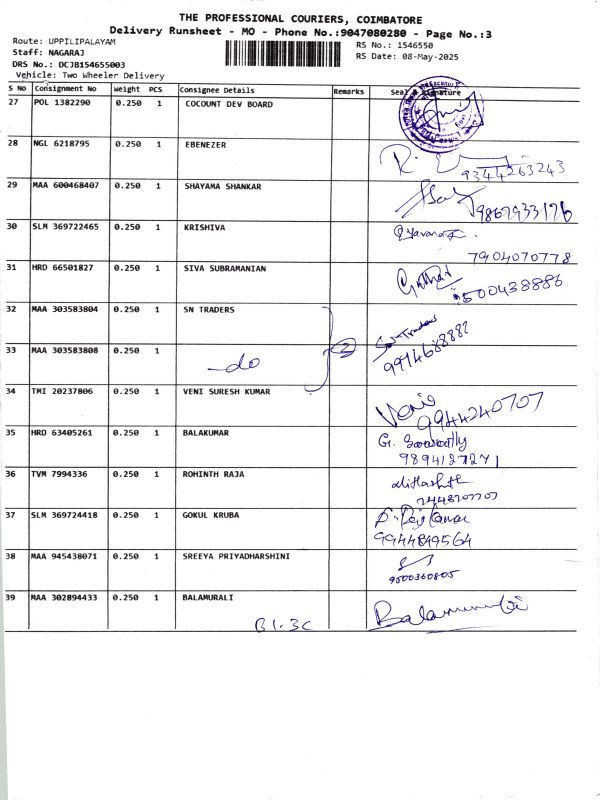 THE PROFESSIONAL COURIERS, COIMBATORE
Delivery Runsheet - MO - Phone No.:9047080280 - Page No.:3
Route: UPPILIPALAYAM
Staff: NAGARAJ
DRS No.: DCJB154655003
Vehicle: Two Wheeler Delivery
RS No.: 1546550
RS Date: 08-May-2025
S No Consignment No Weight PCS Consignee Details Remarks Seal & Signature
27 POL 1382290 0.250 1 COCOUNT DEV BOARD
28 NGL 6218795 0.250 1 EBENEZER
9344263243
29 MAA 600468407 0.250 1 SHAYAMA SHANKAR
9869933176
30 SLM 369722465 0.250 1 KRISHIVA
7904070778
31 HRD 66501827 0.250 1 SIVA SUBRAMANIAN
32 MAA 303583804 0.250 1 SN TRADERS
33 MAA 303583808 0.250 1 -do 2
34 TMI 20237806 0.250 1 VENI SURESH KUMAR
Veni
9944240707
35 HRD 63405261 0.250 1 BALAKUMAR
9894127271
36 TVM 7994336 0.250 1 ROHINTH RAJA
37 SLM 369724418 0.250 1 GOKUL KRUBA
9944849564
38 MAA 945438071 0.250 1 SREEYA PRIYADHARSHINI
9500360805
39 MAA 302894433 0.250 1 BALAMURALI